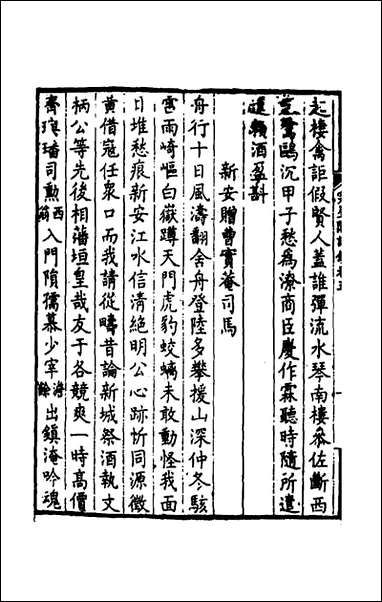 起棲禽詎假賢人蓋誰彈流水琴南樓叅佐斷西
鷺鷗沉甲子愁爲潦商臣慶作霖聽時隨所遣
賴酒盈斟
新安贈曹實菴司馬
舟行十日風濤翻舍舟登陸多攀援山深仲冬駭
雲雨崎嶇白嶽蹲天門虎豹蛟螭未敢動怪我面
日堆愁痕新安江水信清絕明公心跡忻同源徵
黃借寇任衆口而我請從疇昔論新城祭酒執文
柄公等先後相藩垣皇哉友于各競爽一時髙價
齊璵璠司勲西翁入門隕孺慕少宰海餘出鎮淹吟魂